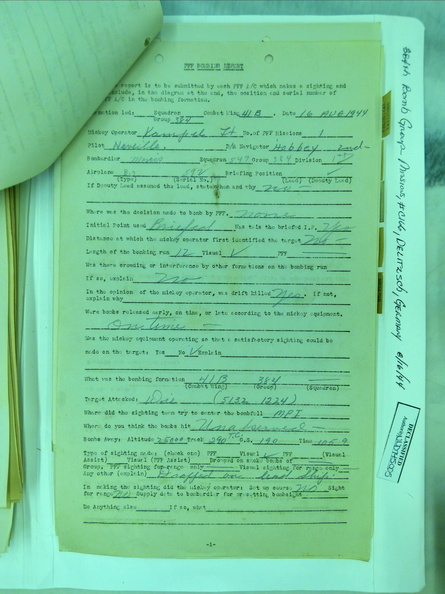 PFF BOMBING REPORT
report is to be submitted by each PFF A/C which makes a sighting and
include, in the diagram at the end, the position and serial number of
PFF A/C in the bombing formation.
Formation led: Squadron Combat Wing 41 B. Date 16 AUG 1944
Group 384
Mickey Operator Lt. No. of PFF Missions 1
Pilot Neville D/R Navigator
Bombardier Squadron 545 Group 384 Division 1st
Airplane B17 Briefing Position ✓
(Type) (Serial No.) (Lead) (Deputy Lead)
If Deputy Lead assumed the lead, state when and why no
Where was the decision made to bomb by PFF. none
Initial Point used Briefed Was this the briefed I.P. Yes
Distance at which the mickey operator first identified the target No
Length of the bombing run 12 Visual ✓ PFF
Was there crowding or interference by other formations on the bombing run
If so, explain No
In the opinion of the mickey operator, was drift killed Yes. If not,
explain why
Were bombs released early, on time, or late according to the mickey equipment.
On time
Was the mickey equipment operating so that a satisfactory sighting could be
made on the target: Yes No ✓ Explain
What was the bombing formation 41 B 384
(Combat Wing) (Group) (Squadron)
Target Attacked: (5132 1224)
Where did the sighting team try to center the bombfall MPI
Where do you think the bombs hit Unobserved
Bombs Away: Altitude 25000 Track 290 G.S. 190 Time
Type of sighting made: (check one) PFF Visual ✓ PFF (Visual
Assist) Visual (PFF Assist) Dropped on smoke bombs of
Group, PFF sighting for range only Visual sighting for range only
Any other (explain) Dropped on lead ship
In making the sighting did the mickey operator: Set up course NO Sight
for range NO Supply data to bombardier for presetting bombsight
Do Anything else If so, what
-1-
384th Bomb Group Missions, #C166, DELITZSCH, Germany 8/16/44
DECLASSIFIED
Authority